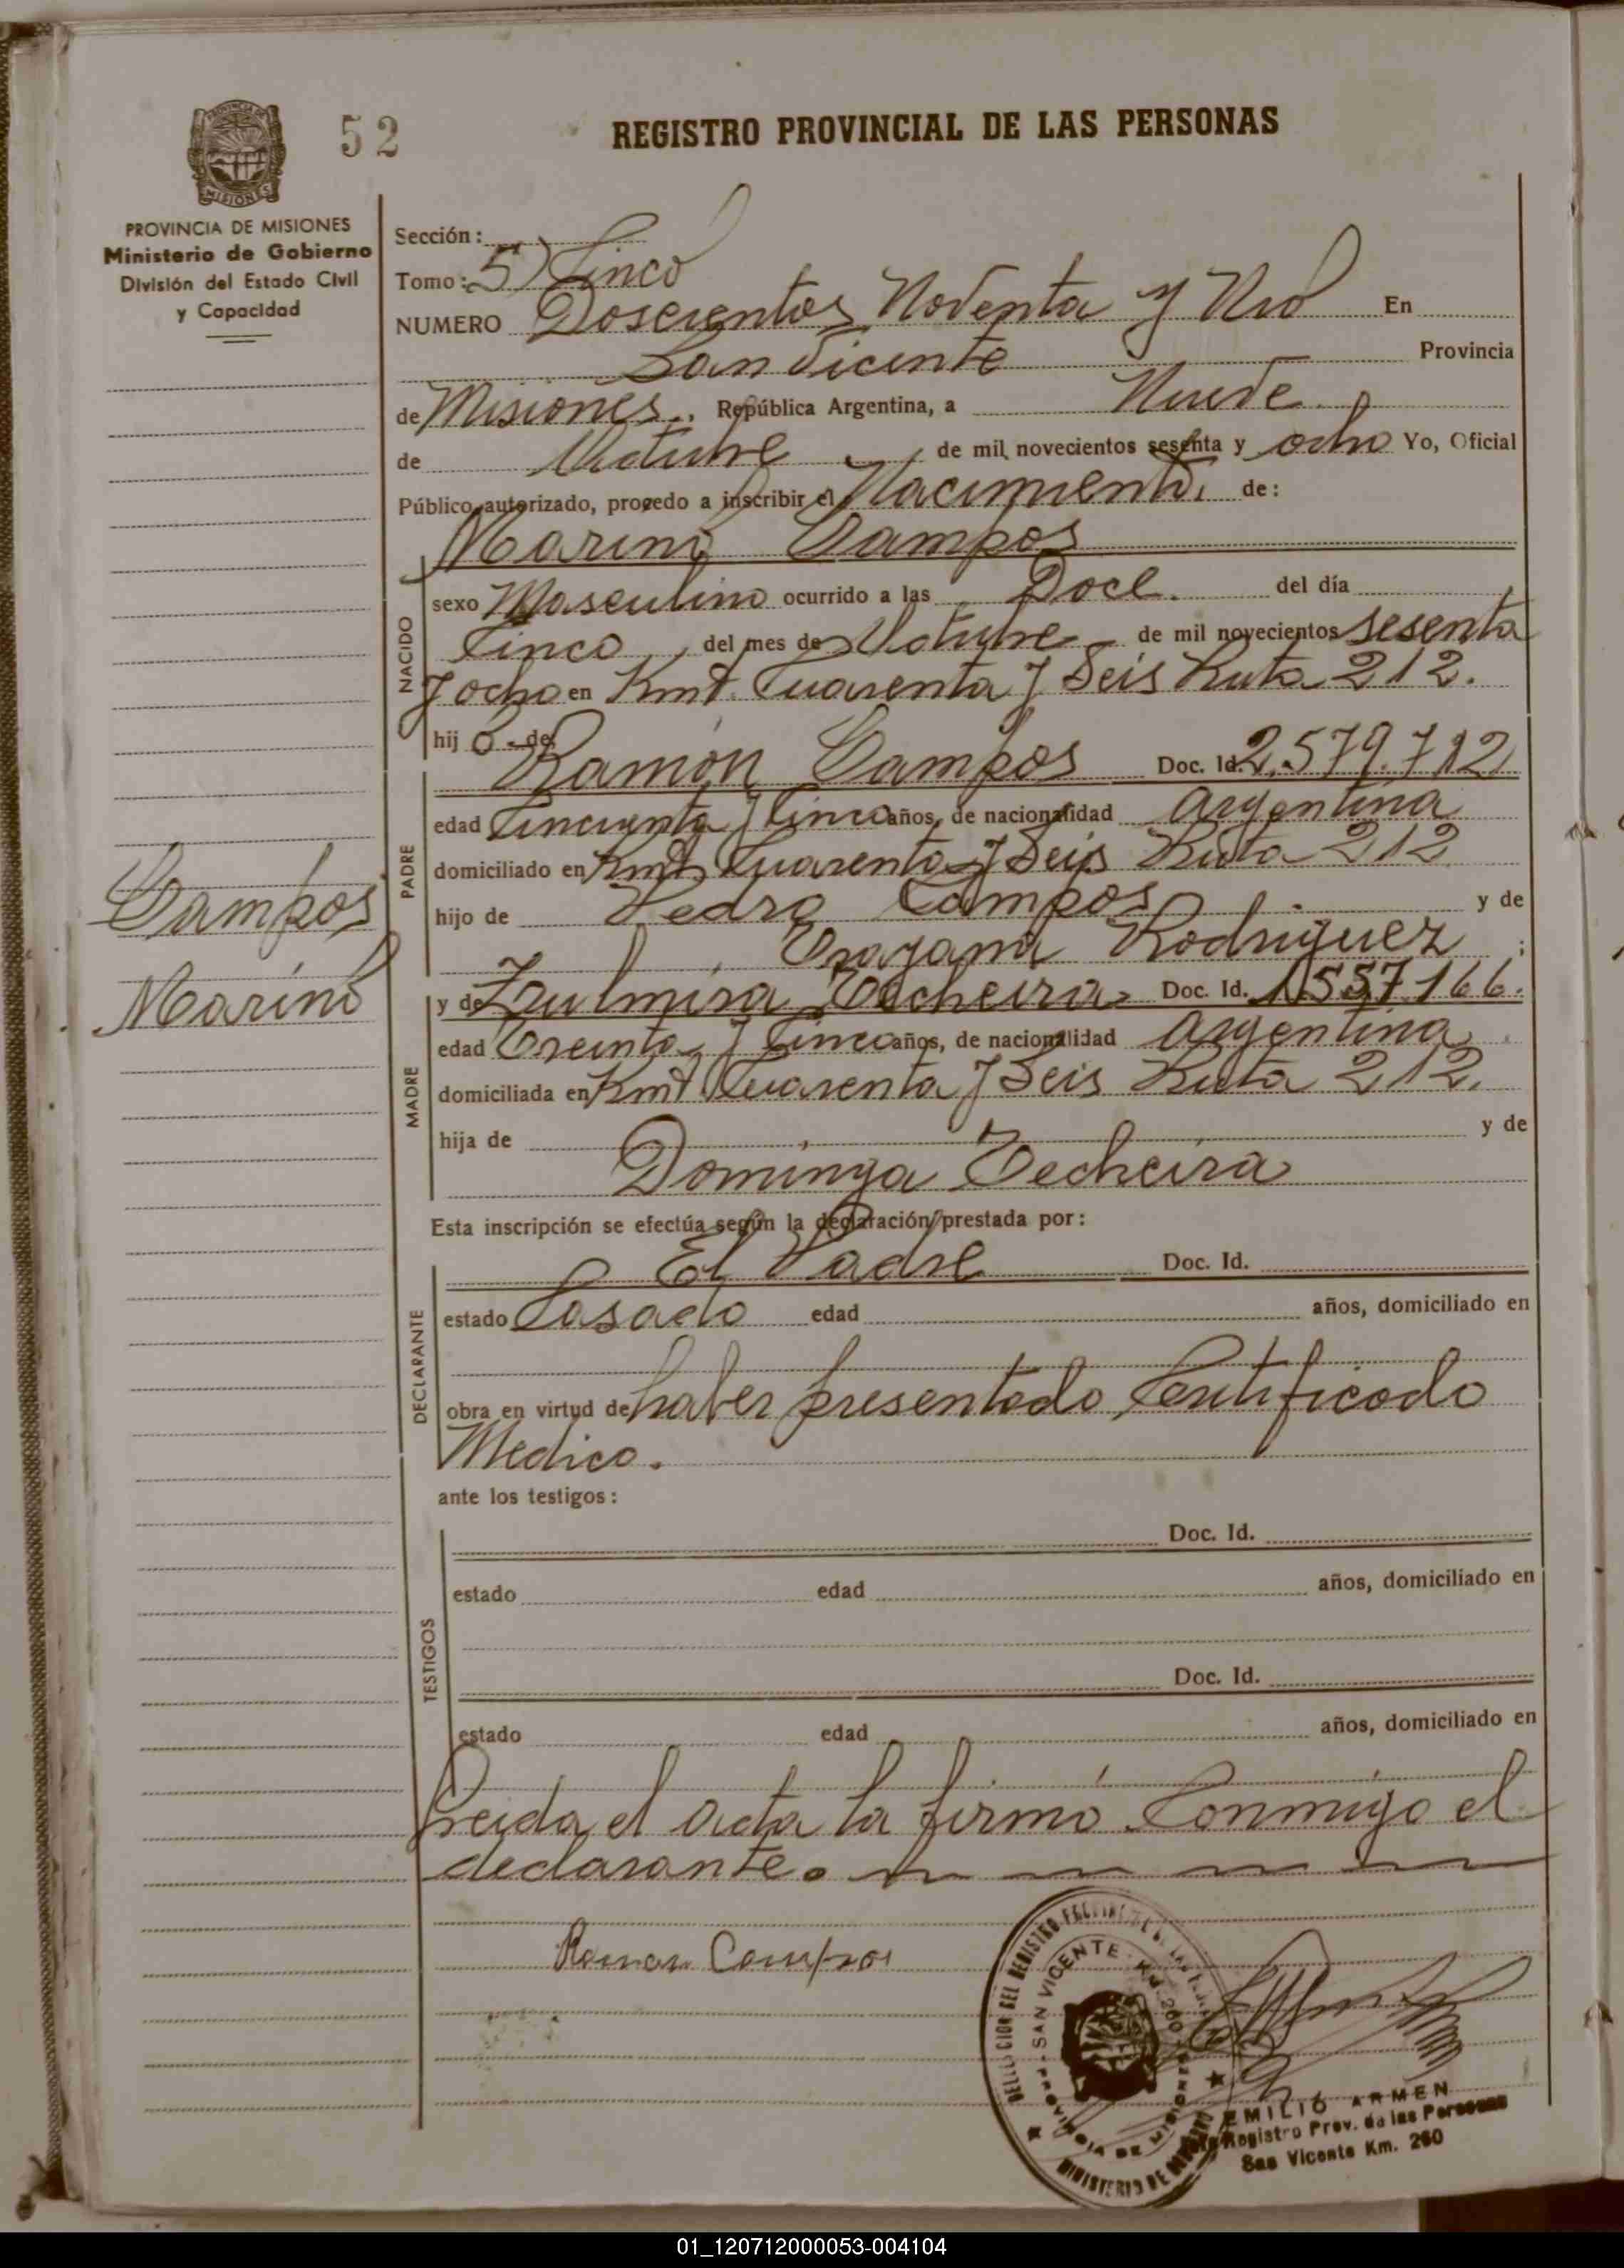 52
REGISTRO PROVINCIAL DE LAS PERSONAS
MISIONES
PROVINCIA DE MISIONES
Ministerio de Gobierno
División del Estado Civil
y Capacidad
Sección:
Tomo: 5) Cinco
NUMERO Doscientos Noventa y Uno En
San Vicente Provincia
de Misiones. República Argentina, a Nueve
de Octubre de mil novecientos sesenta y ocho Yo, Oficial
Público autorizado, procedo a inscribir el Nacimiento de:
Marino Campos
NACIDO
sexo Masculino ocurrido a las Doce. del día
Cinco del mes de Octubre de mil novecientos sesenta
y ocho en Kmt. Cuarenta y Seis Ruta 212.
hijo de
Ramón Campos Doc. Id. 2.579.712
PADRE
edad Cincuenta y Cinco años, de nacionalidad Argentina
domiciliado en Kmt Cuarenta y Seis Ruta 212
hijo de Pedro Campos y de
Rodriguez ;
Campos
Marino
y de Zulmira Techeira Doc. Id. 1.557.166.
MADRE
edad Treinta y Cinco años, de nacionalidad Argentina
domiciliada en Kmt Cuarenta y Seis Ruta 212.
hija de y de
Dominga Techeira
Esta inscripción se efectúa según la declaración prestada por:
El Padre Doc. Id.
DECLARANTE
estado Casado edad años, domiciliado en
obra en virtud de haber presentado Certificado
Medico.
ante los testigos:
TESTIGOS
Doc. Id.
estado edad años, domiciliado en
Doc. Id.
estado edad años, domiciliado en
Leida el acta la firmó Conmigo el
declarante.
Ramon Campos
SAN VICENTE
PROVINCIA DE MISIONES
MINISTERIO DE
EMILIO ARMEN
Registro Prov. de las Personas
San Vicente Km. 260
01_120712000053-004104